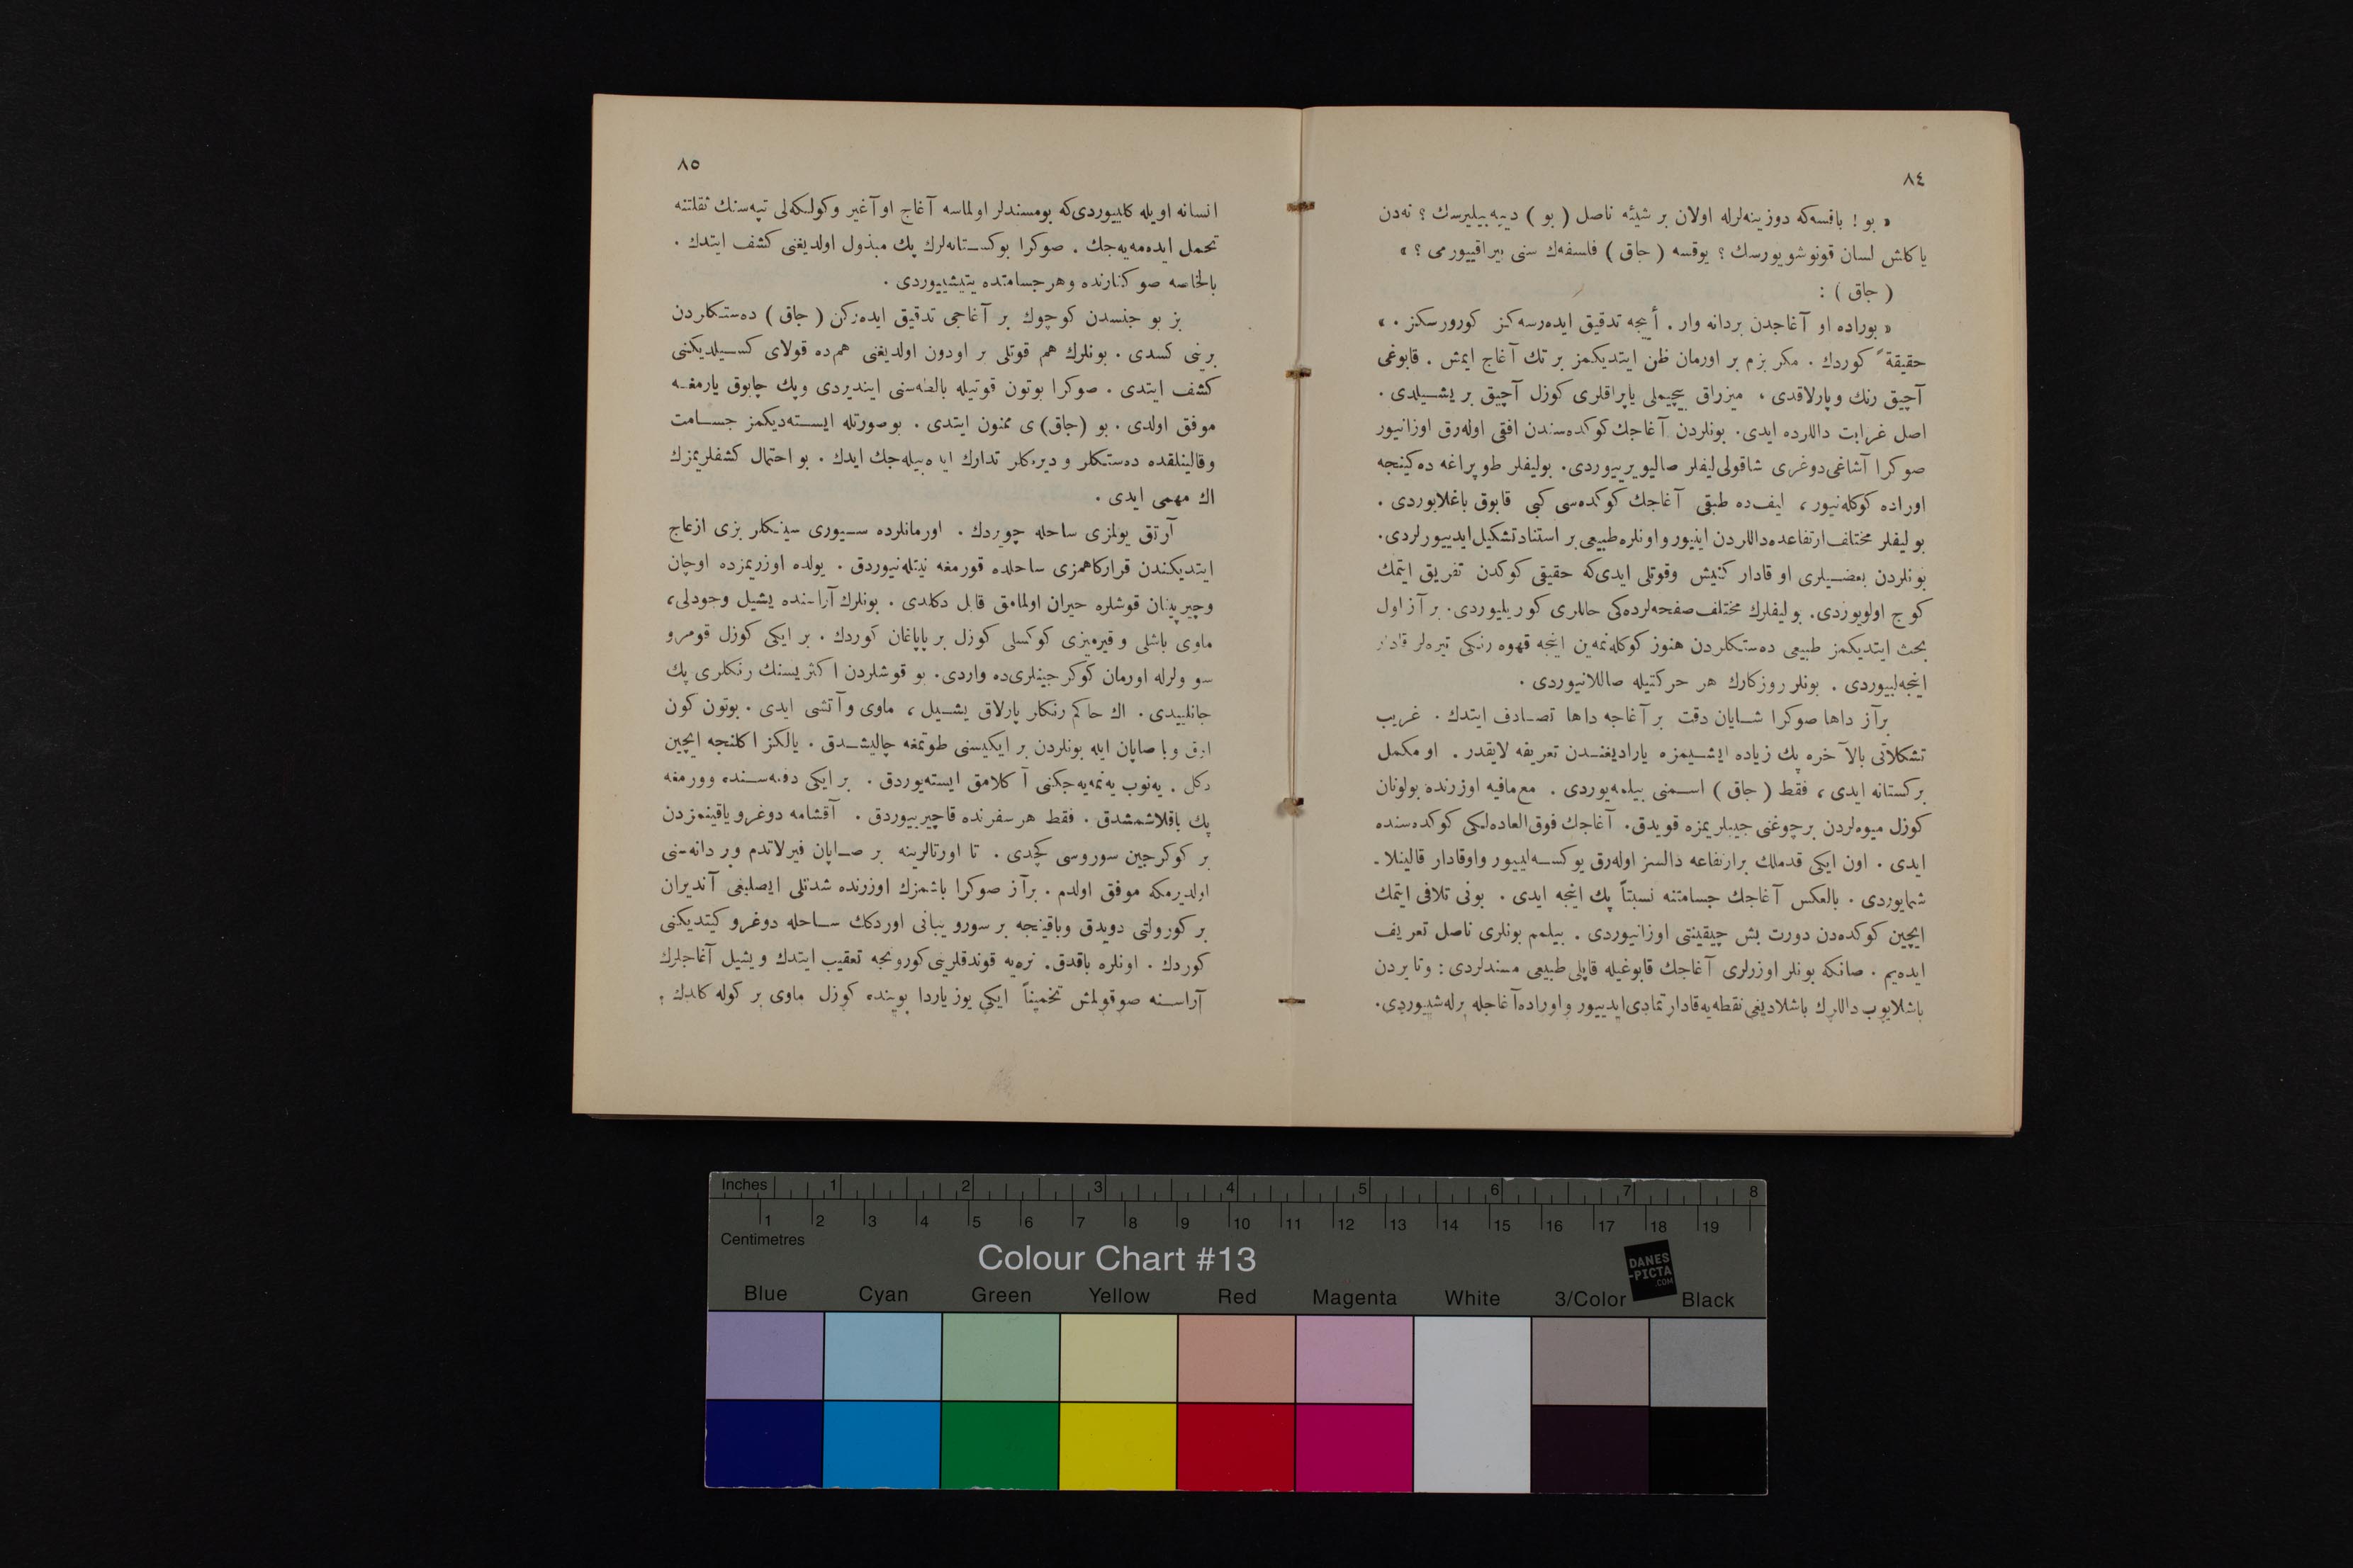 ٨٤
« بو ! باقسه‌كه دوزينه‌لرله اولان بر شيئه ناصل ( بو ) دييه بيليرسك ؟ نه‌دن
ياكلش لسان قونوشويورسك ؟ يوقسه ( جاق ) فلسفه‌ك سنى بيراقييورمى ؟ »
( جاق ) :
« بوراده او آغاجدن بردانه وار . أييجه تدقيق ايدەرسه‌كز كورورسكز . »
حقيقةً كوردك . مكر بزم بر اورمان ظن ايتديكمز بر تك آغاج ايمش . قابوغى
آچيق رنك وپارلاقدى ، ميزراق بيچيملى ياپراقلرى كوزل آچيق بر يشـيلدى .
اصل غرابت داللرده ايدى . بونلردن آغاجك كوكده‌سندن افقى اوله‌رق اوزانيور
صوكرا آشاغى دوغرى شاقولى ليفلر صاليويرييوردى . بوليفلر طوپراغه ده‌كينجه
اوراده كوكله‌نيور ، ليف‌ده طبقى آغاجك كوكده‌سى كبى قابوق باغلايوردى .
بو ليفلر مختلف ارتفاعده داللردن اينيور و اونلره طبيعى بر استناد تشكيل ايدييورلردى .
بونلردن بعضـيلرى او قادار كنيش وقوتلى ايدى‌كه حقيقى كوكدن تفريق ايتمك
كوج اولويوردى . بو ليفلرك مختلف صفحه‌لرده‌كى حاللرى كوريليوردى . بر آز اول
بحث ايتديكمز طبيعى ده‌ستكلردن هنوز كوكله‌نمه‌ين اينجه قهوه رنكى تيره‌لر قادار
اينجه‌لييوردى . بونلر روزكارك هر حركتيله صاللانيوردى .
برآز داها صوكرا شـايان دقت بر آغاجه داها تصـادف ايتدك . غريب
تشكلاتى بالآخره پك زياده ايشـيمزه ياراديغنـدن تعريفه لايقدر . او مكمل
بركستانه ايدى ، فقط ( جاق ) اسـمنى بيلمه‌يوردى . مع‌مافيه اوزرنده بولونان
كوزل ميوه‌لردن برچوغنى جيبلريمزه قويدق . آغاجك فوق‌العاده‌لكى كوكده‌سنده
ايدى . اون ايكى قدملك برارتفاعه دالسز اوله‌رق يوكسـه‌لييور واوقادار قالينلا ـ
شمايوردى . بالعكس آغاجك جسامتنه نسبتاً پك اينجه ايدى . بونى تلافى ايتمك
ايچين كوكده‌دن دورت بش چيقينتى اوزانيوردى . بيلمم بونلرى ناصل تعريف
ايده‌يم . صانكه بونلر اوزرلرى آغاجك قابوغيله قاپلى طبيعى مسندلردى : وتا يردن
باشلايوب داللرك باشلاديغى نقطه‌يه قادار تمادى ايدييور و اوراده آغاجله برله‌شييوردى .
٨٥
انسانه اويله كلييوردى‌كه بومسندلر اولماسه آغاج او آغير وكولكه‌لى تپه‌سنك ثقلتنه
تحمل ايده‌مه‌يه‌جك . صوكرا بوكسـتانه‌لرك پك مبذول اولديغنى كشف ايتدك .
بالخاصه صو كنارنده وهر جسامتده يتيشييوردى .
بز بو جنسدن كوچوك بر آغاجى تدقيق ايده‌ركن ( جاق ) ده‌ستكلردن
برينى كسدى . بونلرك هم قوتلى بر اودون اولديغنى هم‌ده قولاى كسـيلديكنى
كشف ايتدى . صوكرا بوتون قوتيله بالطه‌سنى اينديردى وپك چابوق يارمغـه
موفق اولدى . بو (جاق) ى ممنون ايتدى . بو صورتله ايسـته‌ديكمز جسـامت
وقالينلقده ده‌ستكلر و ديركلر تدارك ايده‌بيله‌جك ايدك . بو احتمال كشفلريمزك
اك مهمى ايدى .
آرتق يولمزى ساحله چويردك . اورمانلرده سـيورى سينكلر بزى ازعاج
ايتديكندن قراركاهمزى ساحلده قورمغه نيتله‌نيوردق . يولده اوزريمزده اوچان
وچيرپينان قوشلره حيران اولمامق قابل دكلدى . بونلرك آراسنده يشيل وجودلى ،
ماوى باشلى و قيرميزى كوكسلى كوزل بر پاپاغان كوردك . بر ايكى كوزل قومرو
سو ولرله اورمان كوكرجينلرى‌ده واردى . بو قوشلردن اكثريسنك رنكلرى پك
جانلييدى . اك حاكم رنكلر پارلاق يشـيل ، ماوى وآتشى ايدى . بوتون كون
اوق ويا صاپان ايله بونلردن بر ايكيسنى طوتمغه چاليشـدق . يالكز اكلنجه ايچين
دكل . يه‌نوب يه‌نمه‌يه‌جكنى آكلامق ايسته‌يوردق . بر ايكى دفعه‌سـنده وورمغه
پك ياقلاشمشدق . فقط هر سفرنده قاچيرييوردق . آقشامه دوغرو ياقينمزدن
بر كوكرجين سوروسى كچدى . تا اورتالرينه بر صـاپان فيرلاتدم وبر دانه‌سنى
اولديرمكه موفق اولدم . برآز صوكرا باشمزك اوزرنده شدتلى ايصليغى آنديران
بر كورولتى دويدق وباقينجه بر سورو يبانى اوردكك سـاحله دوغرو كيتديكنى
كوردك . اونلره باقدق . نره‌يه قوندقلرينى كورونجه تعقيب ايتدك ويشيل آغاجلرك
آراسـنه صوقولمش تخميناً ايكى يوز ياردا بوينده كوزل ماوى بر كوله كلدك .
Inches 1 2 3 4 5 6 7 8
1 2 3 4 5 6 7 8 9 10 11 12 13 14 15 16 17 18 19
Centimetres
Colour Chart #13
DANES
-PICTA
.COM
Blue Cyan Green Yellow Red Magenta White 3/Color Black